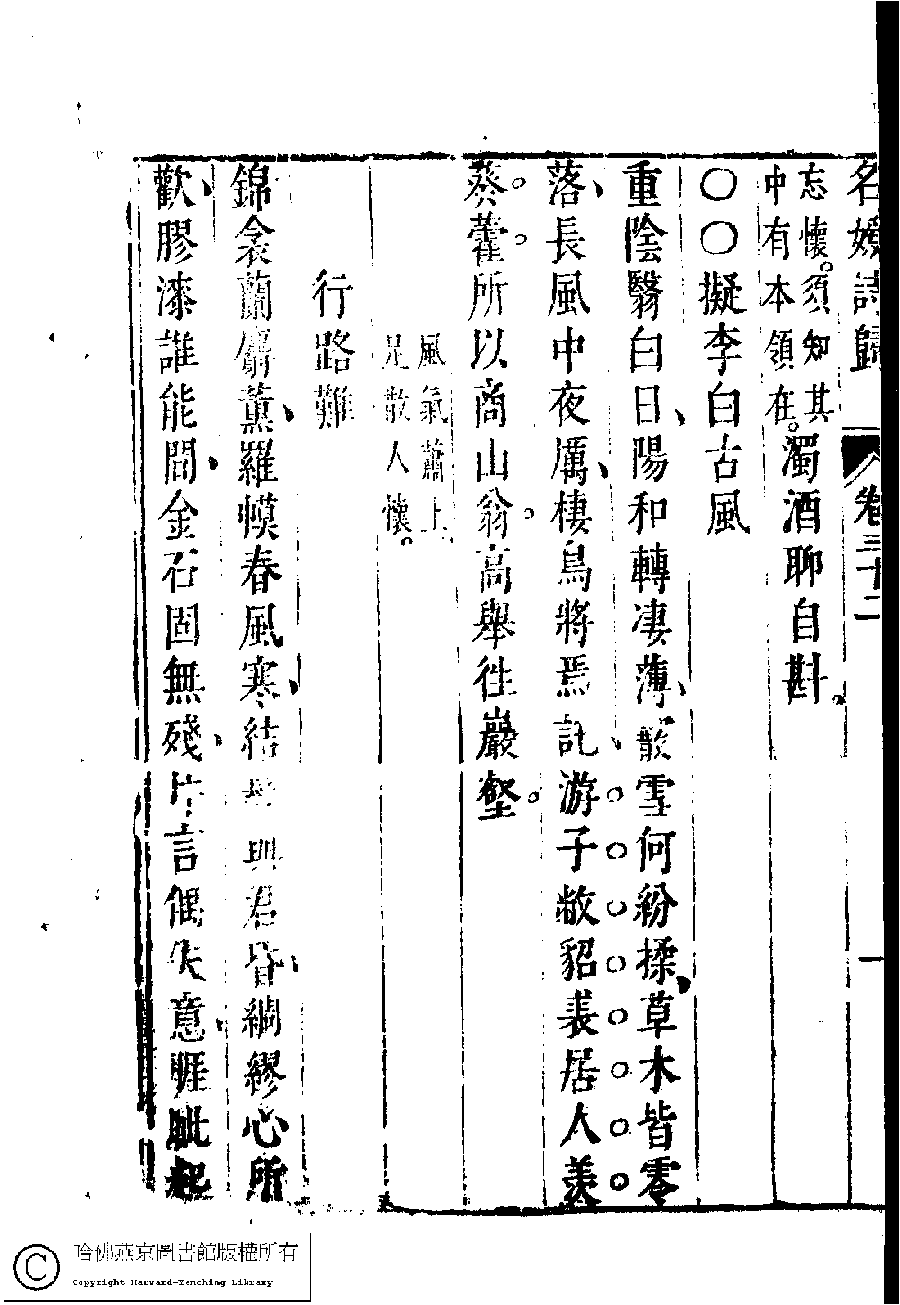 名媛詩歸 卷三十二 一
忘懷。須知其
中有本領在。濁酒聊自斟。
〇〇擬李白古風
重陰翳白日、陽和轉凄薄、散雪何紛揉、草木皆零
落、長風中夜厲、棲鳥將焉託、游子敝貂裘居人羨
葵藿。所以商山翁。高舉徃巖壑。
風氣蕭上
足散人懷。
行路難
錦衾蘭麝薰、羅幙春風寒、結 與君昏、綢繆心所
歡、膠漆誰能間、金石固無殘、片言偶失意、睚眦起
哈佛燕京圖書館版權所有
Copyright Harvard-Yenching Library